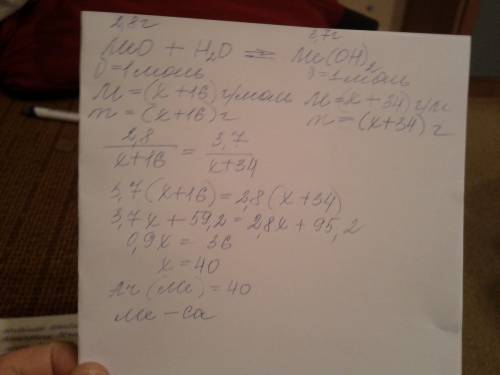 2,8г 3,7г
MeO + H₂O = Me(OH)₂
υ=1моль υ=1моль
M=(x+16)г/моль M=(x+34)г/м
m=(x+16)г m=(x+34)г
2,8/x+16 = 3,7/x+34
3,7(x+16)=2,8(x+34)
3,7x+59,2=2,8x+95,2
0,9x= 36
x=40
Ar(Me)=40
Me-Ca